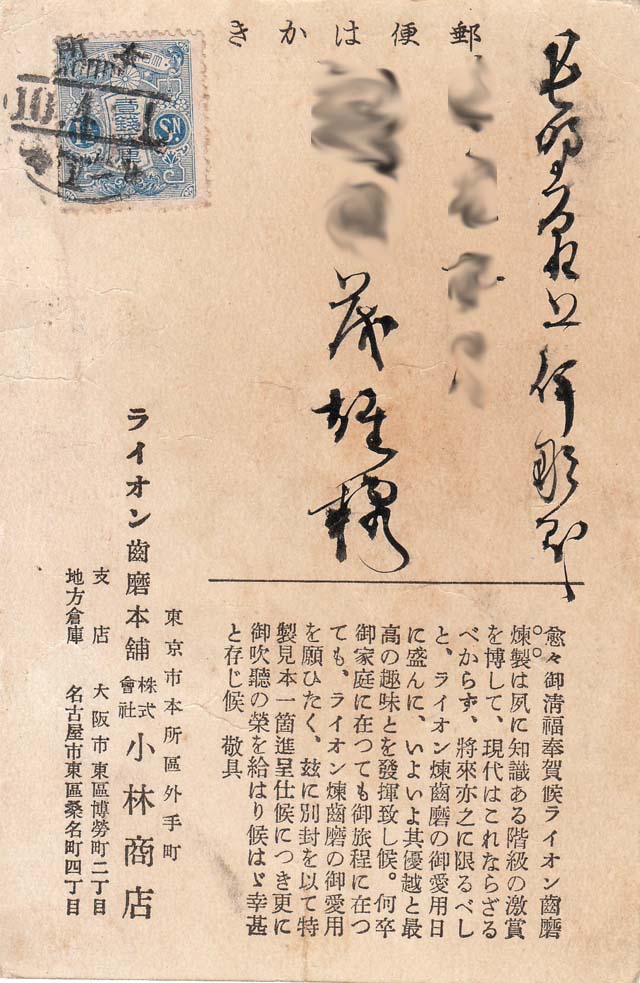 郵便はかき
長野縣上伊那郡
茂雄様
愈々御淸福奉賀候ライオン齒磨
煉製は夙に知識ある階級の激賞
を博して、現代はこれならざる
べからず、將來亦之に限るべし
と、ライオン煉齒磨の御愛用日
に盛んに、いよいよ其優越と最
高の趣味とを發揮致し候。何卒
御家庭に在つても御旅程に在つ
ても、ライオン煉齒磨の御愛用
を願ひたく、玆に別封を以て特
製見本一箇進呈仕候につき更に
御吹聽の榮を給はり候はゞ幸甚
と存じ候 敬具
東京市本所區外手町
ライオン齒磨本舖 株式會社 小林商店
支店 大阪市東區博勞町二丁目
地方倉庫 名古屋市東區桑名町四丁目
壹錢
1SN.
10.4.1